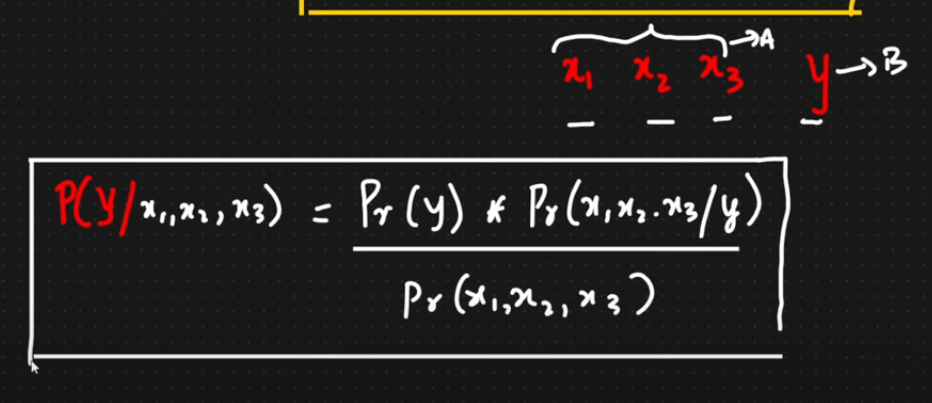 x₁ x₂ x₃ →A y →B
P(y/x₁,x₂,x₃) = Pr(y) * Pr(x₁x₂.x₃/y)
Pr(x₁,x₂,x₃)